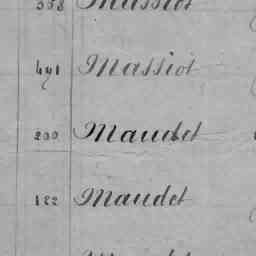 338 Massiot
491 Massiot
200 Maudet
122 Maudet